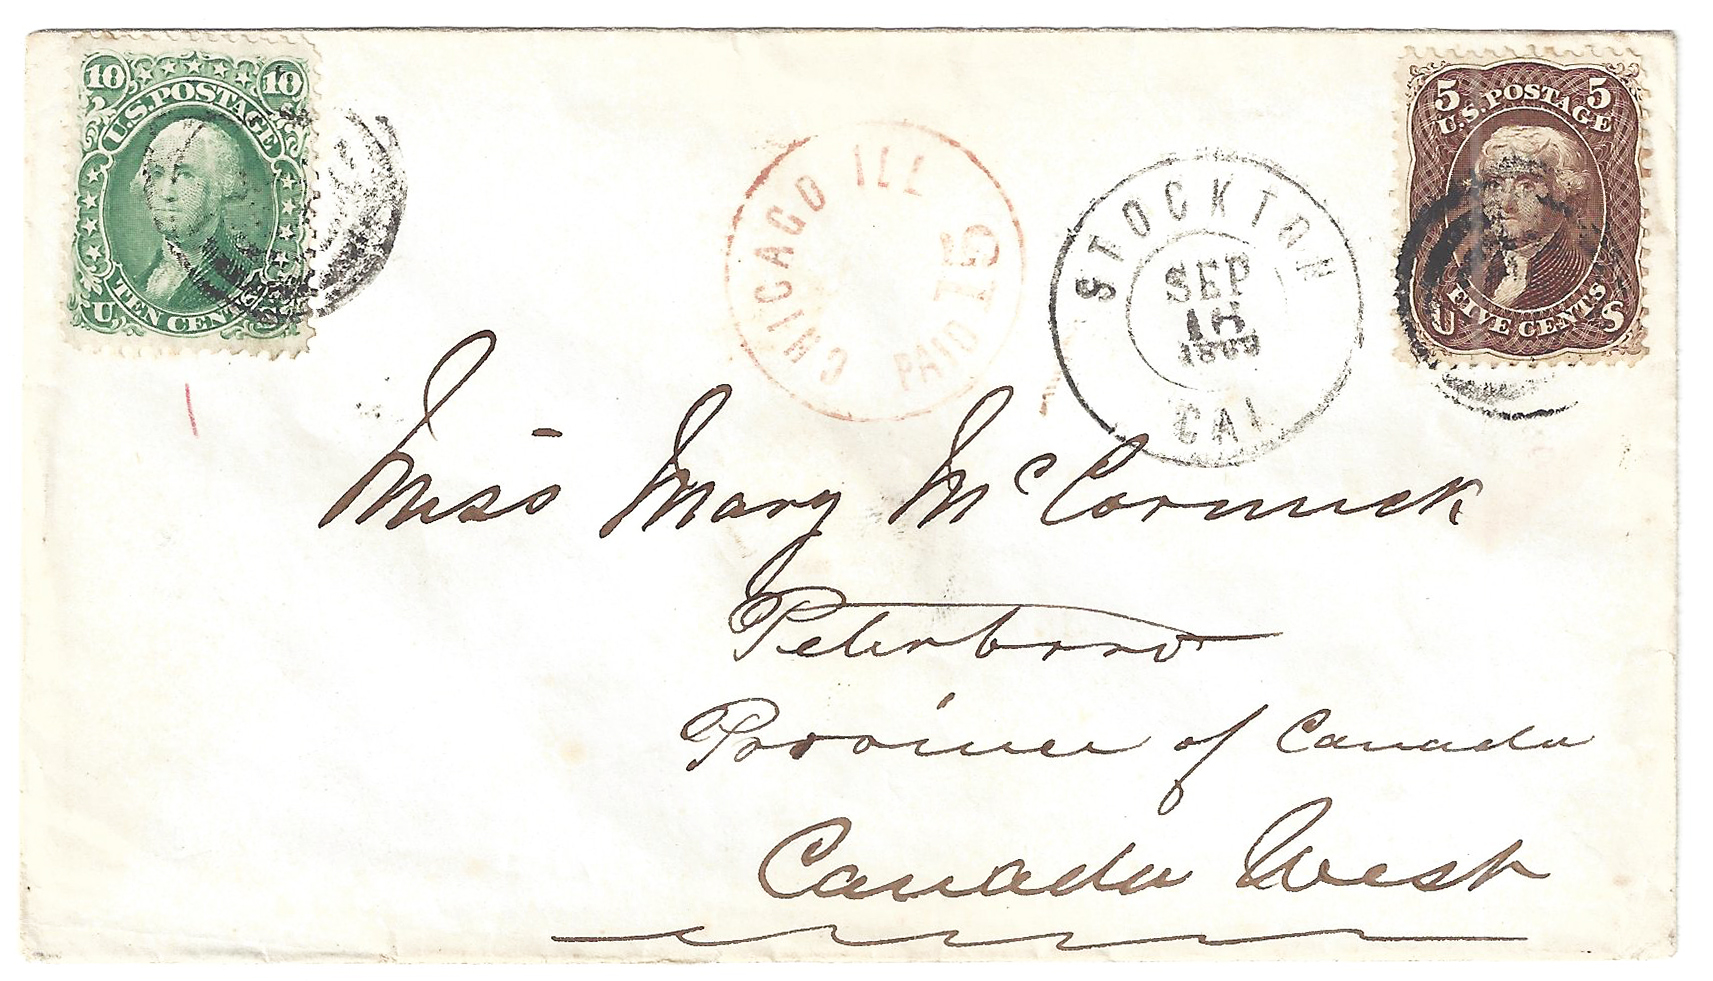 10 10
U.S. POSTAGE
TEN CENTS
U S
CHICAGO ILL
PAID 15
STOCKTON
SEP
16
CAL
5 5
U.S. POSTAGE
FIVE CENTS
U S
Miss Mary McCormick
Peterboro
Province of Canada
Canada West